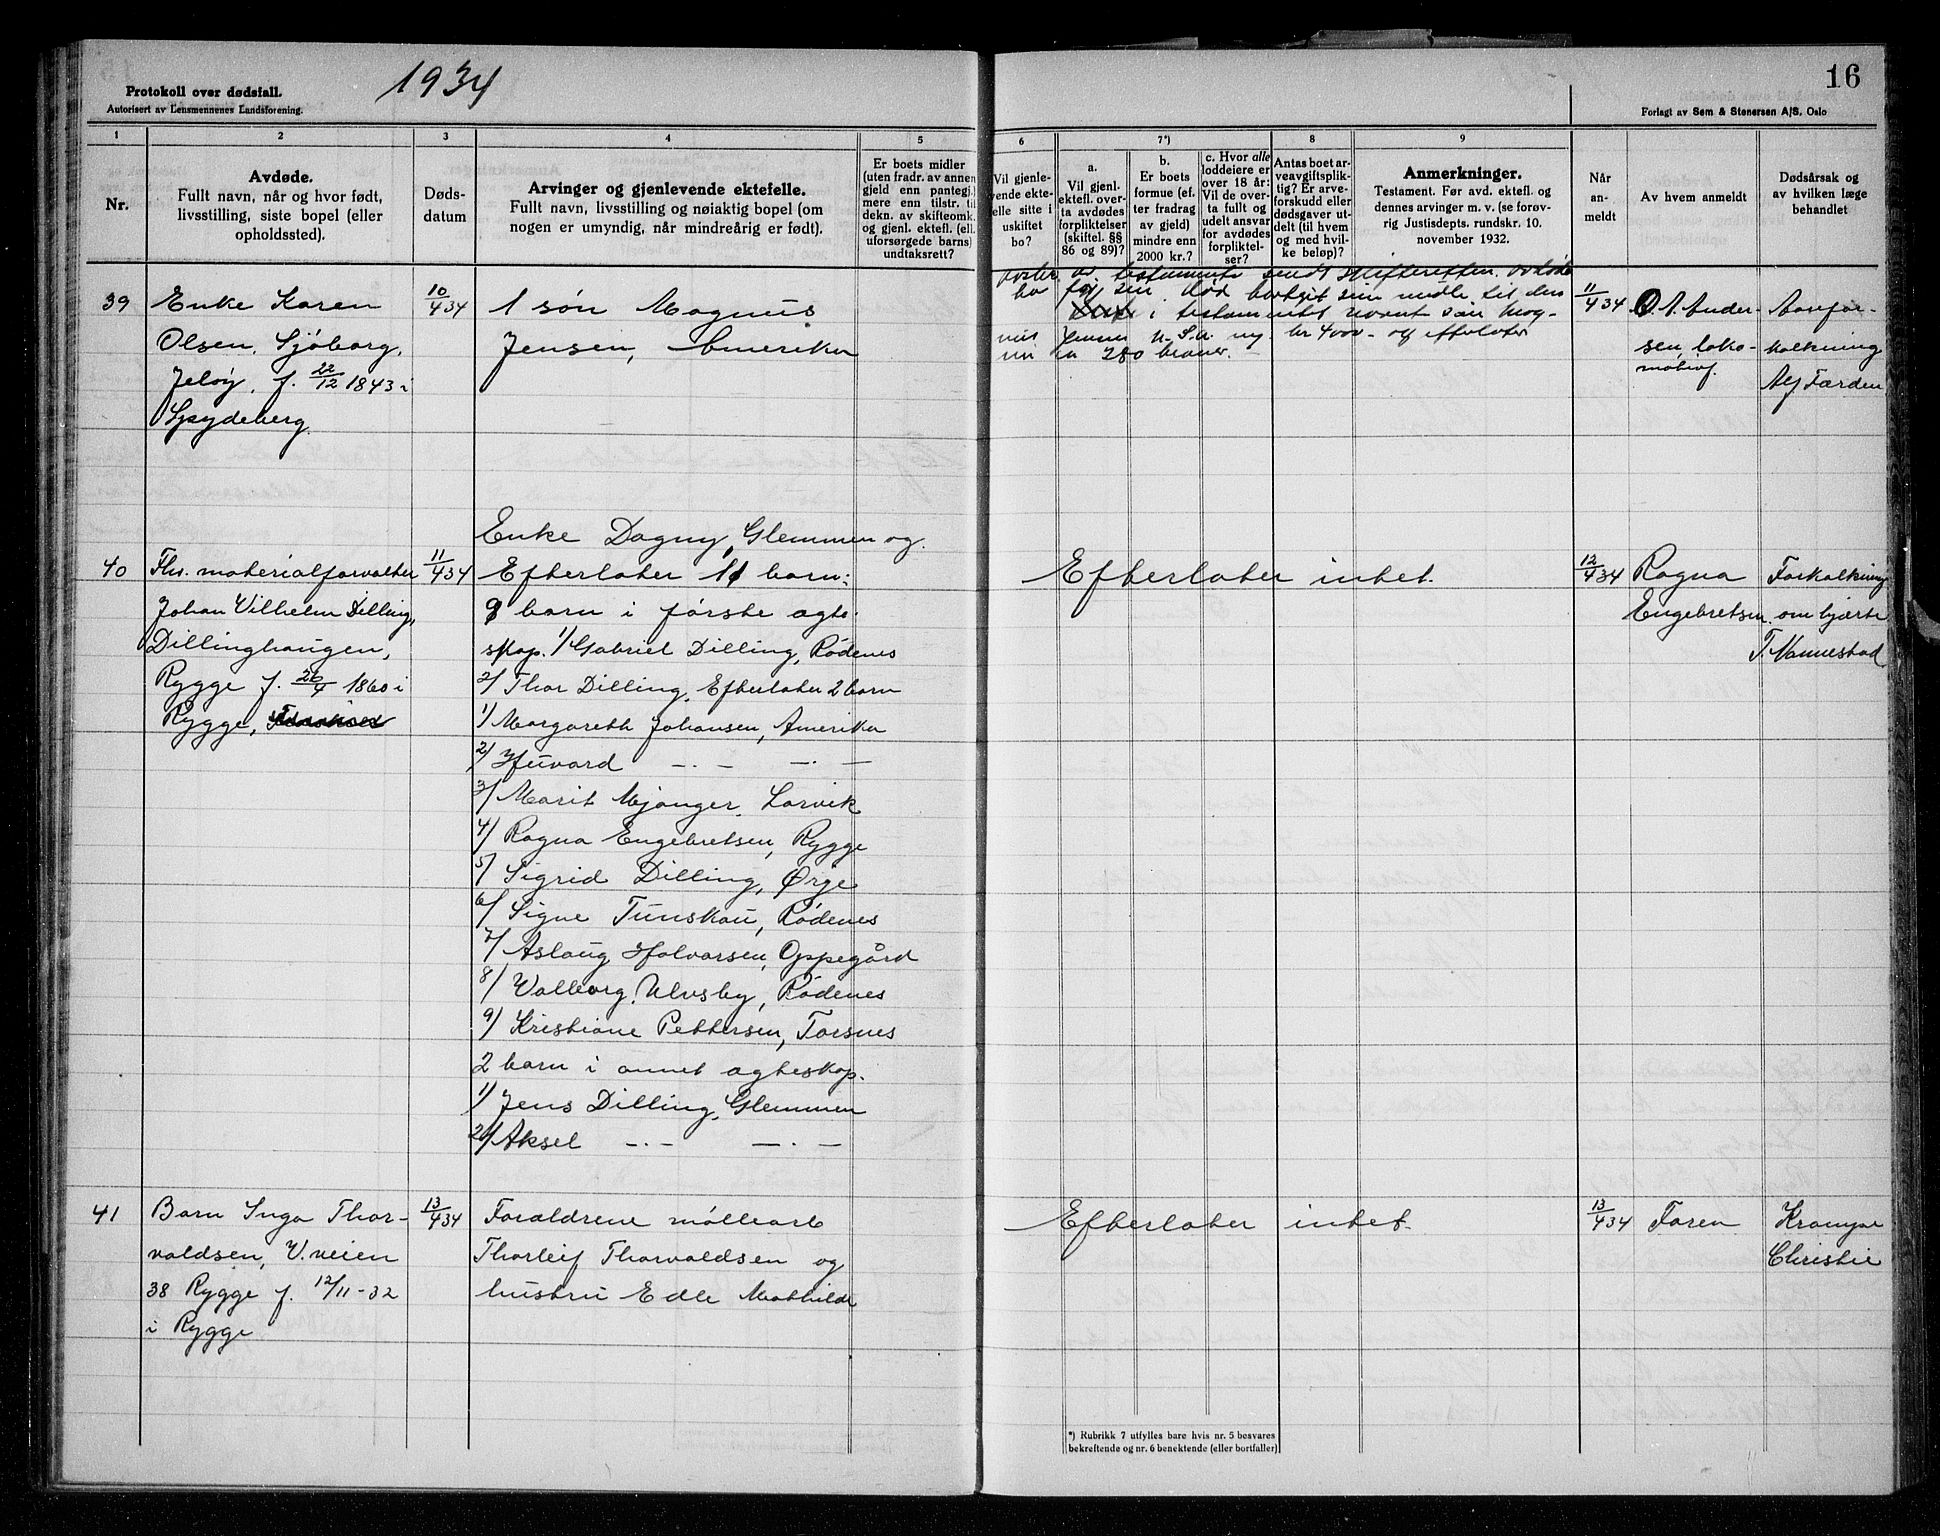 Protokoll over dødsfall.
Autorisert av Lensmennenes Landsforening.
1934
16
Forlagt av Sem & Stenersen A/S. Oslo
1
2
3
4
5
6
7*)
8
9
Nr.
Avdøde.
Fullt navn, når og hvor født,
livsstilling, siste bopel (eller
opholdssted).
Døds-
datum
Arvinger og gjenlevende ektefelle.
Fullt navn, livsstilling og nøiaktig bopel (om
nogen er umyndig, når mindreårig er født).
Er boets midler
(uten fradr. av annen
gjeld enn pantegj.)
mere enn tilstr. til
dekn. av skifteomk.
og gjenl. ektefl. (ell.
uforsørgede barns)
undtaksrett?
Vil gjenle-
vende ekte-
felle sitte i
uskiftet
bo?
a.
Vil gjenl.
ektefl. over-
ta avdødes
forpliktelser
(skiftel. §§
86 og 89)?
b.
Er boets
formue (ef-
ter fradrag
av gjeld)
mindre enn
2000 kr.?
c. Hvor alle
loddeiere er
over 18 år:
Vil de over-
ta fullt og
udelt ansvar
for avdødes
forpliktel-
ser?
Antas boet ar-
veavgiftsplik-
tig? Er arve-
forskudd eller
dødsgaver ut-
delt (til hvem
og med hvil-
ke beløp)?
Anmerkninger.
Testament. Før avd. ektefl. og
dennes arvinger m. v. (se forøv-
rig Justisdepts. rundskr. 10.
november 1932.
Når
an-
meldt
Av hvem anmeldt
Dødsårsak og
av hvilken læge
behandlet
39
Enke Karen
Olsen, Sjöborg,
Jeløy, f. 22/12 1843 i
Spydeberg.
10/4 34
1 søn Magnus
Jensen, Amerika
av testamente sendt skifteretten. Avdøde
i testamentet nevnt søn Mag-
nus Jensen U.S.A. og kr 4000 - og efterlater
280 kroner. -
11/4 34
O. A. Ander-
sen, loko-
motivf.
Aarefor-
kalkning
Alf Færden
40
Fhv. materialforvalter
Johan Vilhelm Dilling,
Dillinghaugen,
Rygge f. 26/4 1860 i
Rygge,
11/4 34
Enke Dagny, Glemmen og.
Efterlater 11 barn:
9 barn i første ægte-
skap. 1/ Gabriel Dilling, Rødenes
2/ Thor Dilling, Efterlater 2 barn
1/ Margareth Johansen, Amerika
2/ Huvard — . — — . —
3/ Marit Mjanger, Larvik
4/ Ragna Engebretsen, Rygge
5/ Sigrid Dilling, Ørje
6/ Signe Tunskau, Rødenes
7/ Aslaug Halvorsen, Oppegård
8/ Valborg Ulvsby, Rødenes
9/ Kristiane Pettersen, Torsnes
2 barn i annet ægteskap.
1/ Jens Dilling, Glemmen
2/ Aksel — . — — . —
Efterlater intet.
12/4 34
Ragna
Engebretsen.
Forkalkning
om hjærte
T. Nannestad
41
Barn Inga Thor-
valdsen, V. veien
38 Rygge f. 12/11-32
i Rygge
13/4 34
Forældrene møllearb
Thorleif Thorvaldsen og
hustru Edle Mathilde
Efterlater intet.
13/4 34
Faren
Krampe
Christie
*) Rubrikk 7 utfylles bare hvis nr. 5 besvares
bekreftende og nr. 6 benektende (eller bortfaller)